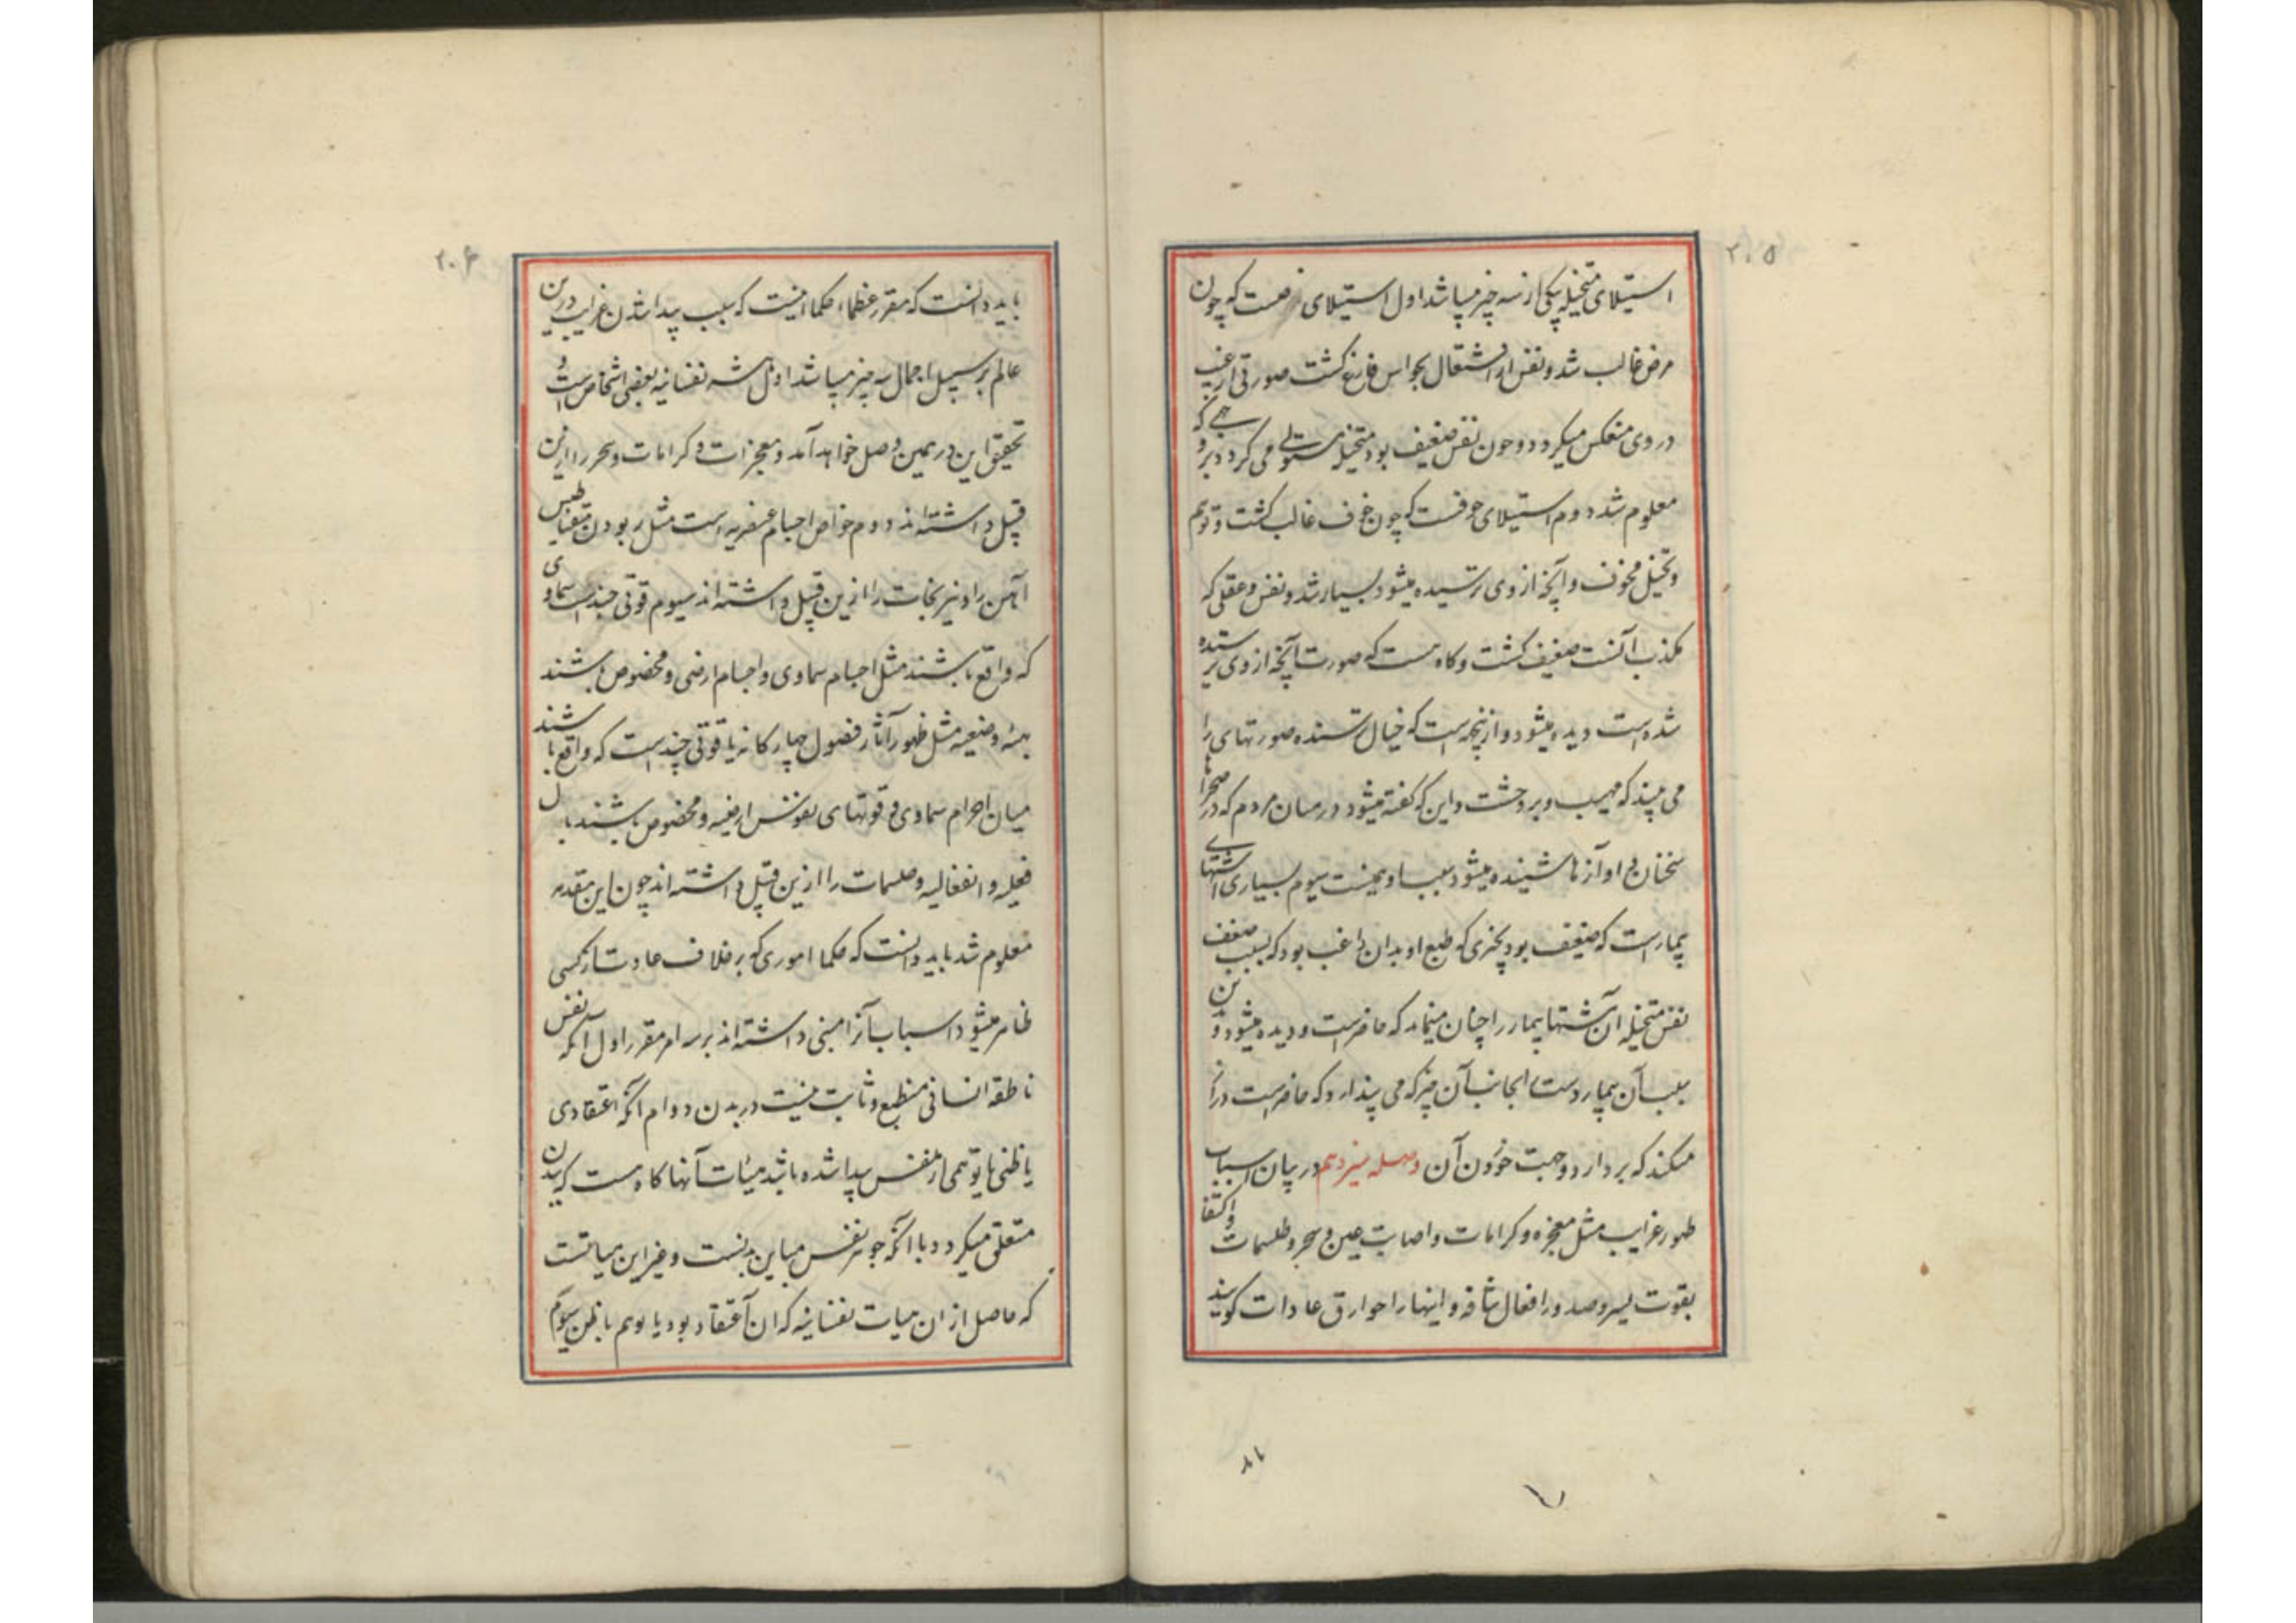 ۲۰۵
استیلای متخیله یکی از سه چیز میباشد اول استیلای مرضست که چون
مرض غالب شد و نفس از اشتغال بحواس فارغ گشت صورتی از غیب
در وی منعکس میکردد و چون نفس ضعیف بود متخیله مستولی می کردد بر
معلوم شد دوم استیلای خوفست که چون خوف غالب کشت و توهم
و تخیل مخوف و آنچه از وی ترسیده میشود بسیار شد و نفس و عقلی که
مکذب آنست ضعیف کشت و کاه هست که صورت آنچه از وی ترسیده
شده است دیده میشود و ازینجهت است که خیال ترسنده صورتهای را
می بیند که مهیب و پر وحشت و این که کفته میشود در میان مردم که در صحراها
سخنان و آوازها شنیده میشود سبب او همینست سیوم بسیاری اشتهای
بیمار است که ضعیف بود بچیزی که طبع او بدان راغب بود که بسبب ضعف
نفس متخیله آن مشتها بیمار را چنان مینماید که حاضرست و دیده میشود و
بسبب آن بیمار دست بجانب آن چیز که می پندارد که حاضرست دراز
میکند که بردارد و جهت خوردن آن وصله سیزدهم در بیان اسباب
ظهور غرایب مثل معجزه و کرامات و اصابت عین و سحر و طلسمات و اکتفا
بقوت یسیر و صدور افعال شاقه و اینها را خوارق عادات کویند
باید
۲۰۶
باید دانست که مقرر عظماء حکما اینست که سبب پیدا شدن غرایب درین
عالم بر سبیل اجمال سه چیز میباشد اول نفسانیه بعضی اشخاص است
تحقیق این در همین وصل خواهد آمد و معجزات و کرامات و سحر را ازین
قبیل داشته اند دوم خواص اجسام عنصریه است مثل ربودن مقناطیس
آهن را و نیرنجات را ازین قبیل داشته اند سیوم قوتی چند است سماوی
که واقع باشند مثل اجسام سماوی و اجسام ارضی و مخصوص باشند
بهیئه وضعیه مثل ظهور آثار فصول چهارکانه یا قوتی چند است که واقع باشند
میان اجرام سماوی و قوتهای نفوس ارضیه و مخصوص باشند با
فعلیه و انفعالیه و طلسمات را ازین قبیل داشته اند چون این مقدمه
معلوم شد باید دانست که حکما اموری که بر خلاف عادت از کسی
ظاهر میشود اسباب آنرا مبنی داشته اند بر سه امر مقرر اول آنکه نفس
ناطقه انسانی منطبع و ثابت نیست در بدن دوم آنکه اعتقادی
یا ظنی یا توهمی از نفس پیدا شده باشد هیئات آنها کاه هست که ببدن
متعلق میکردد با آنکه جوهر نفس مباین بدنست و غیر این هیاتست
که حاصل از ان هیات نفسانیه که ان اعتقاد بود یا توهم یا ظن سیوم